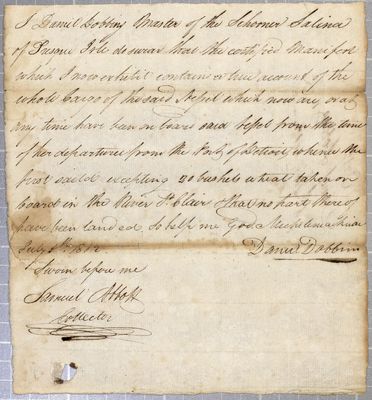 I Daniel Dobbins Master of the Schooner Salina
of Presque Isle do swear that the certified Manifest
which I now exhibit contain a true account of the
whole Cargo of the said Vessel which now are, or at
any time have been on board said Vessel from the time
of her departure from the Port of Detroit, where she
first sailed excepting 20 bushels wheat taken on
board in the River St Clair & that no part thereof
have been landed so help me God. Michilimackinac
July 1812
Daniel Dobbins
Sworn before me
Samuel Abbott
Collector